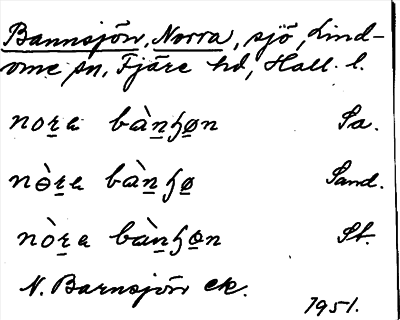 Bannsjön, Norra, sjö, Lind-
ome sn, Fjäre hd, Hall. l.
nora bànɧøn Sa.
nòra bànɧø Sand.
nòra bànɧøn St.
N. Barnsjön ek.
1951.